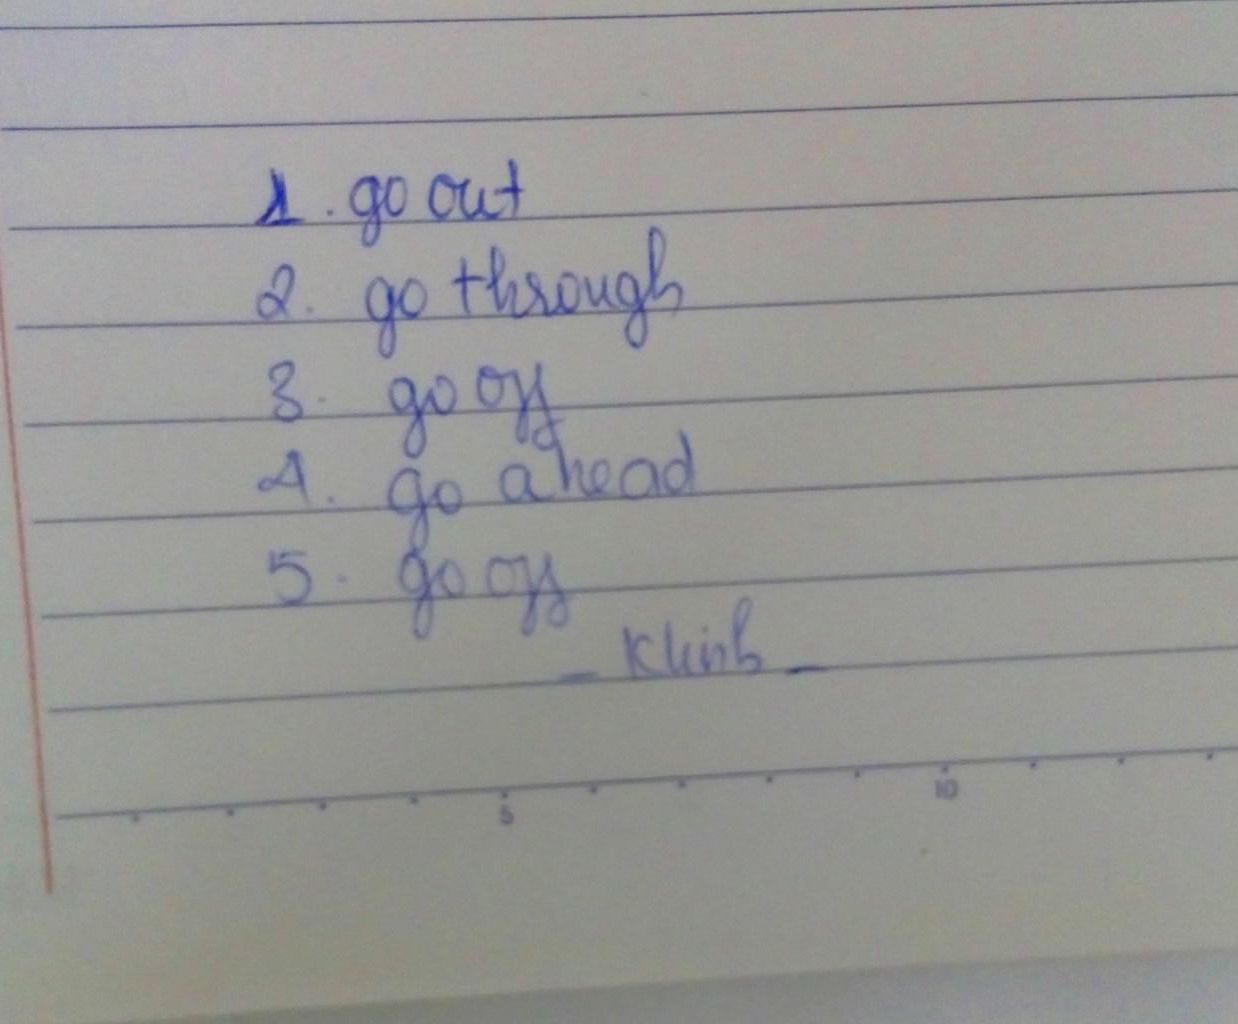 1. go out
2. go through
3. go off
4. go ahead
5. go off
- Khinh -
5 10